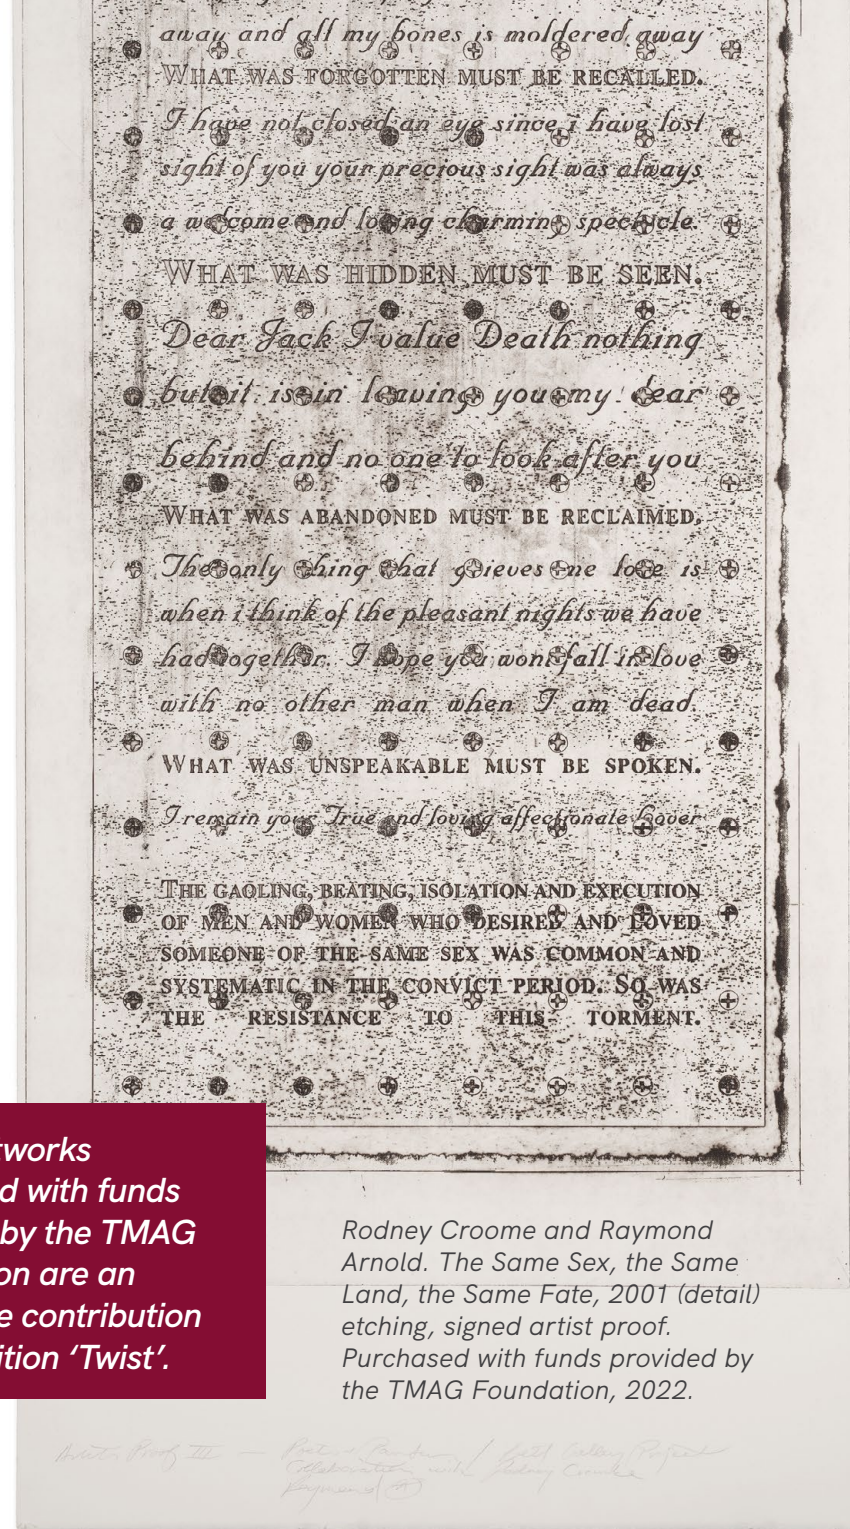 away and all my bones is moldered away
WHAT WAS FORGOTTEN MUST BE RECALLED.
I have not closed an eye since i have lost
sight of you your precious sight was always
a welcome and loving charming spectacle.
WHAT WAS HIDDEN MUST BE SEEN.
Dear Jack I value Death nothing
but it is in leaving you my dear
behind and no one to look after you
WHAT WAS ABANDONED MUST BE RECLAIMED.
The only thing that grieves me love is
when i think of the pleasant nights we have
had together. I hope you wont fall in love
with no other man when I am dead.
WHAT WAS UNSPEAKABLE MUST BE SPOKEN.
I remain your True and loving affectionate Lover
THE GAOLING, BEATING, ISOLATION AND EXECUTION
OF MEN AND WOMEN WHO DESIRED AND LOVED
SOMEONE OF THE SAME SEX WAS COMMON AND
SYSTEMATIC IN THE CONVICT PERIOD. SO WAS
THE RESISTANCE TO THIS TORMENT.
tworks
d with funds
by the TMAG
on are an
e contribution
ition ‘Twist’.
Rodney Croome and Raymond
Arnold. The Same Sex, the Same
Land, the Same Fate, 2001 (detail)
etching, signed artist proof.
Purchased with funds provided by
the TMAG Foundation, 2022.
Artist's Proof III —
Collaboration with Rodney Croome
Raymond